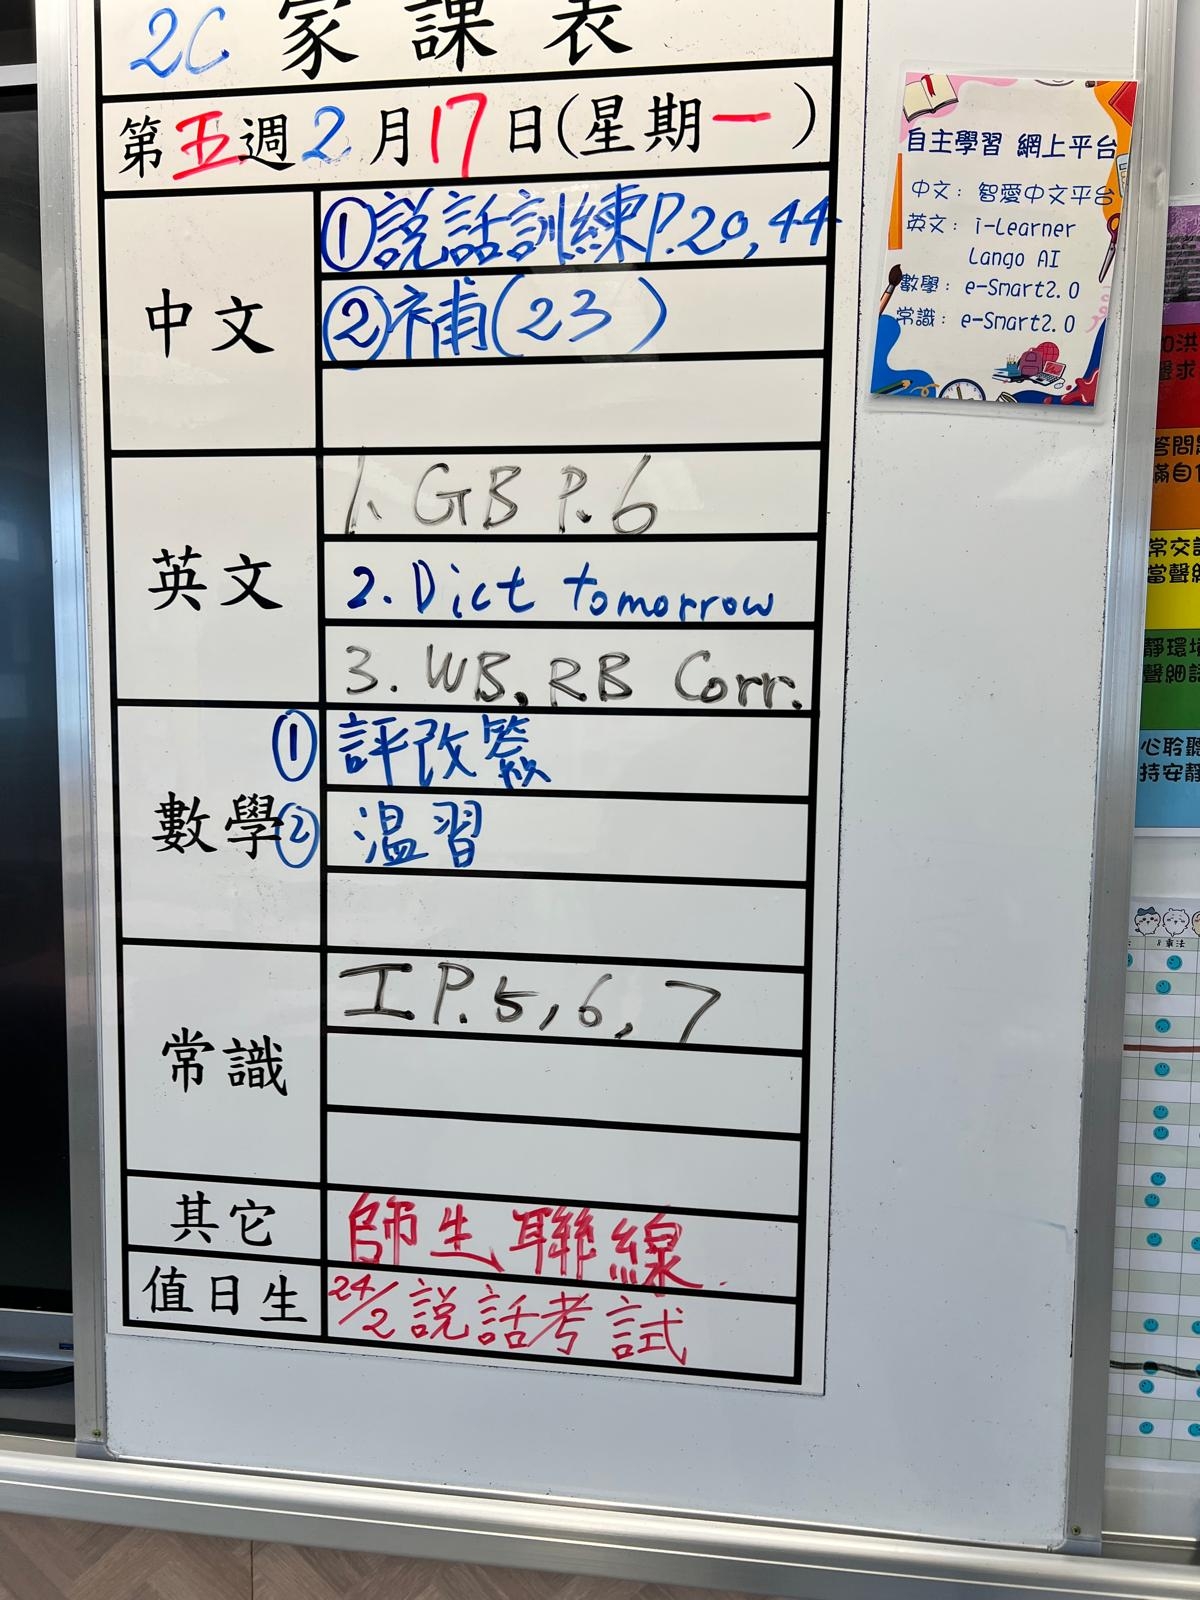 2C 家課表
第五週2月17日(星期一)
中文
①説話訓練P.20,44
②補(23)
英文
1. GB P.6
2. Dict tomorrow
3. WB, RB Corr.
數學
① 評改簽
② 温習
常識
I P.5,6,7
其它
師生聯線
值日生
24/2 説話考試
自主學習 網上平台
中文：智愛中文平台
英文：i-Learner
Lango AI
數學：e-Smart2.0
常識：e-Smart2.0
答問
滿自
常交
當聲
靜環境
聲細
心聆聽
持安靜
8乘法